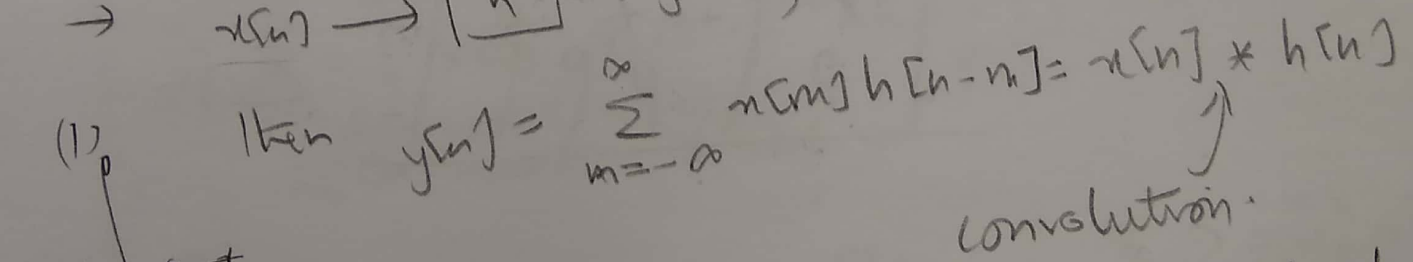 → x[n] → h
(1) Then y[n] = ∞ Σ m=-∞ x[m] h[n-m] = x[n] * h[n]
convolution.